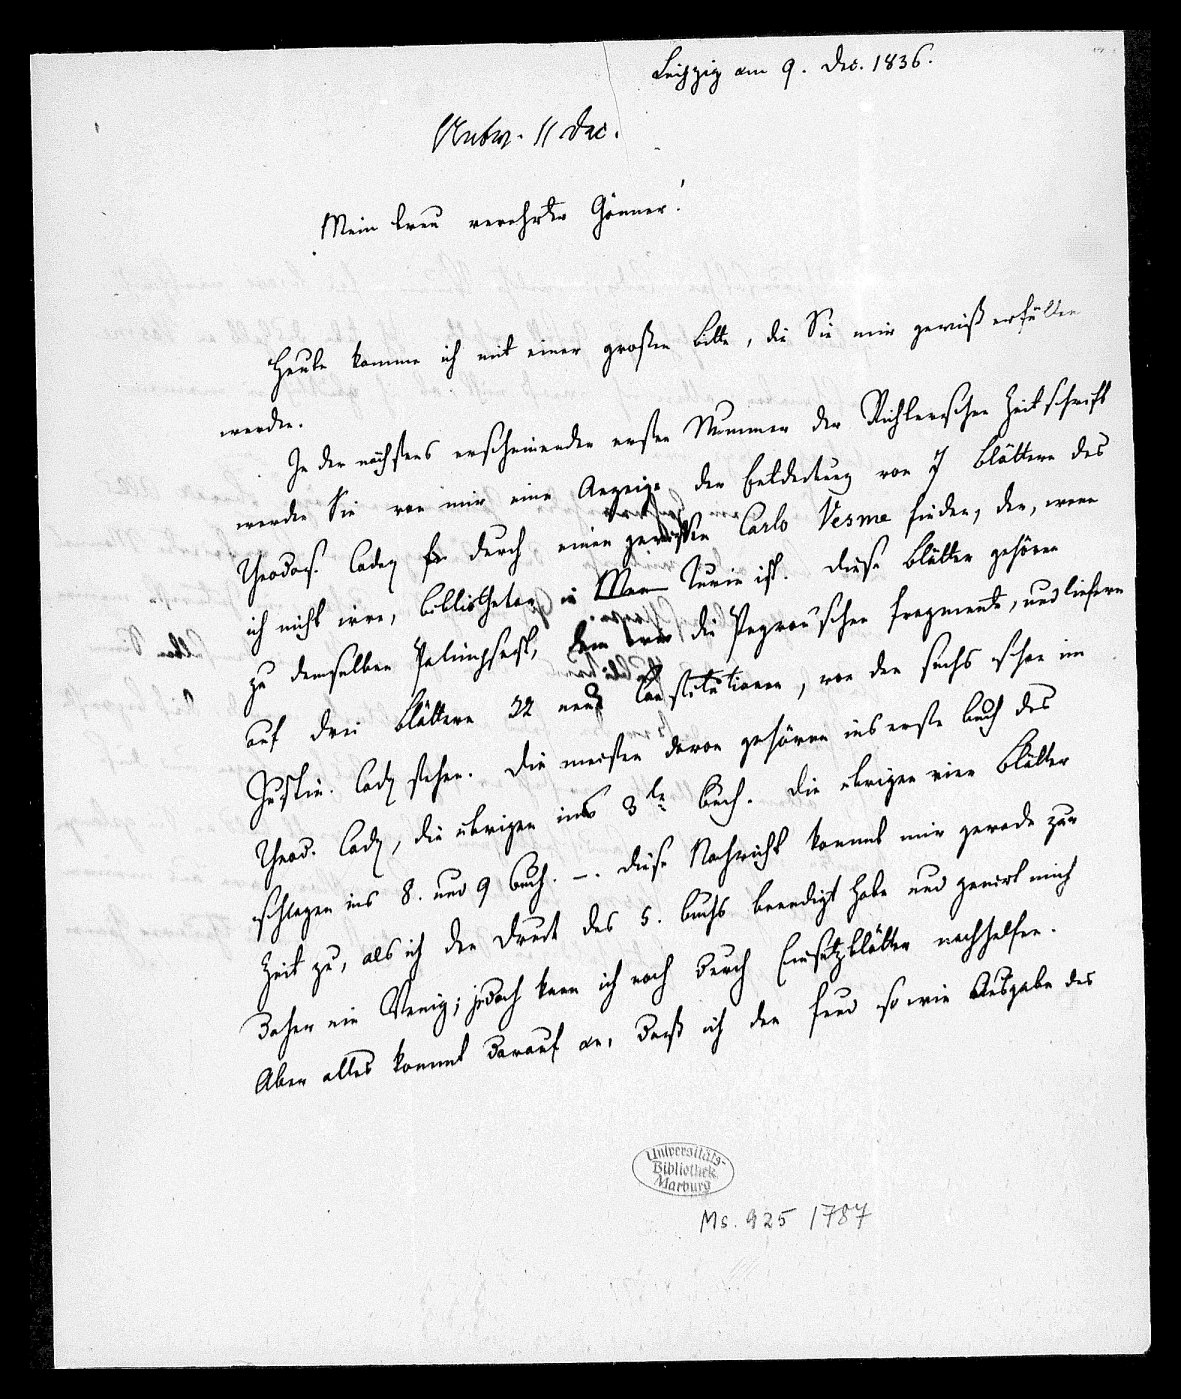 Leipzig am 9. Dec. 1836.
Antw. 11 Dec.
Mein treu verehrter Gönner!
Heute komme ich mit einer großen Bitte, die Sie mir gewiß erfüllen
werden.
In der nächstens erscheinenden ersten Nummer der Richterschen Zeitschrift
werden Sie von mir eine Anzeige der Entdeckung von 7 Blättern des
Theodos. Codex durch einen gewissen Carlo Vesme finden, der, wenn
ich nicht irre, Bibliothekar in Turin ist. Diese Blätter gehören
zu demselben Palimpsest, die Peyron'schen Fragmente, und liefern
auf drei Blättern 22 neue Constitutionen, von den sechs schon im
Justin. Codex stehen. Die meisten davon gehören ins erste Buch des
Theod. Codex, die übrigen ins 3te Buch. Die übrigen vier Blätter
schlagen ins 8. und 9 Buch. –. Diese Nachricht kommt mir gerade zur
Zeit zu, als ich den Druck des 5. Buchs beendigt habe und genirt mich
daher ein Wenig; jedoch kann ich noch durch Einsatzblätter nachhelfen.
Aber alles kommt darauf an, daß ich den Fund so wie Ausgabe des
Universitäts-
Bibliothek
Marburg
Ms. 925 1787